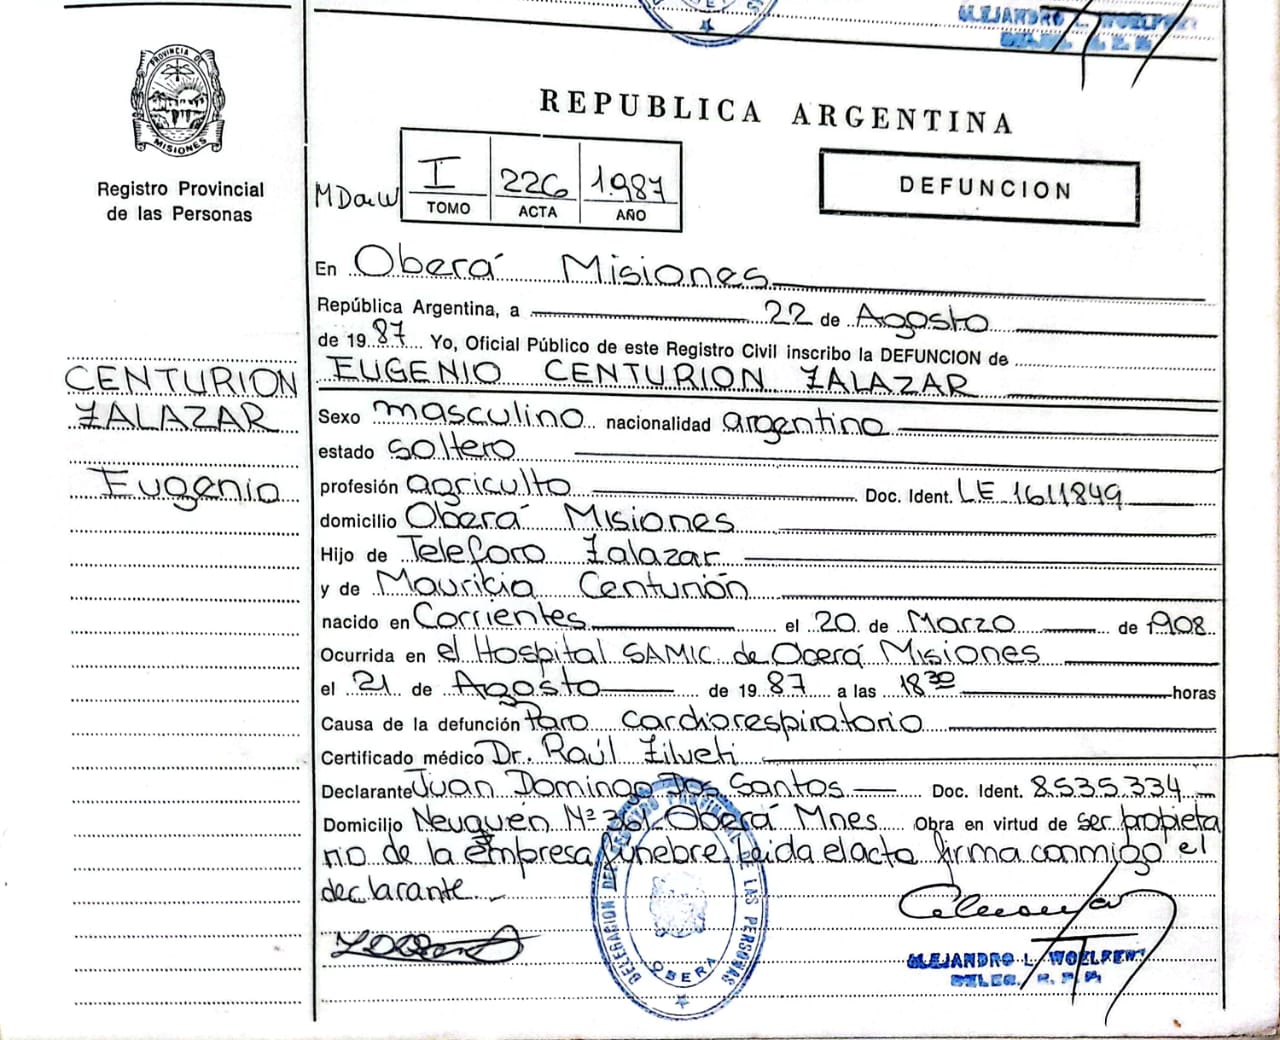 ALEJANDRO L. WOELFERT
DELEG. R. P. P.
PROVINCIA DE
MISIONES
Registro Provincial
de las Personas
REPUBLICA ARGENTINA
DEFUNCION
I 226 1.987
TOMO ACTA AÑO
En Oberá Misiones
República Argentina, a 22 de Agosto
de 1987 Yo, Oficial Público de este Registro Civil inscribo la DEFUNCION de
EUGENIO CENTURION ZALAZAR
CENTURION
ZALAZAR
Eugenio
Sexo masculino nacionalidad argentina
estado soltero
profesión agriculto Doc. Ident. LE 1611849
domicilio Oberá Misiones
Hijo de Teleforo Zalazar
y de Mauricia Centurión
nacido en Corrientes el 20 de Marzo de 1908
Ocurrida en el Hospital SAMIC de Oberá Misiones
el 21 de Agosto de 1987 a las 18 30 horas
Causa de la defunción Paro cardiorespiratorio
Certificado médico Dr. Raúl Zilveti
Declarante Juan Domingo Dos Santos Doc. Ident. 8.535.334
Domicilio Neuquén Nº 361 - Oberá Mnes Obra en virtud de ser propieta
rio de la empresa fúnebre. Leida el acta firma conmigo el
declarante
DE LAS PERSONAS
OBERA
ALEJANDRO L. WOELFERT
DELEG. R. P. P.